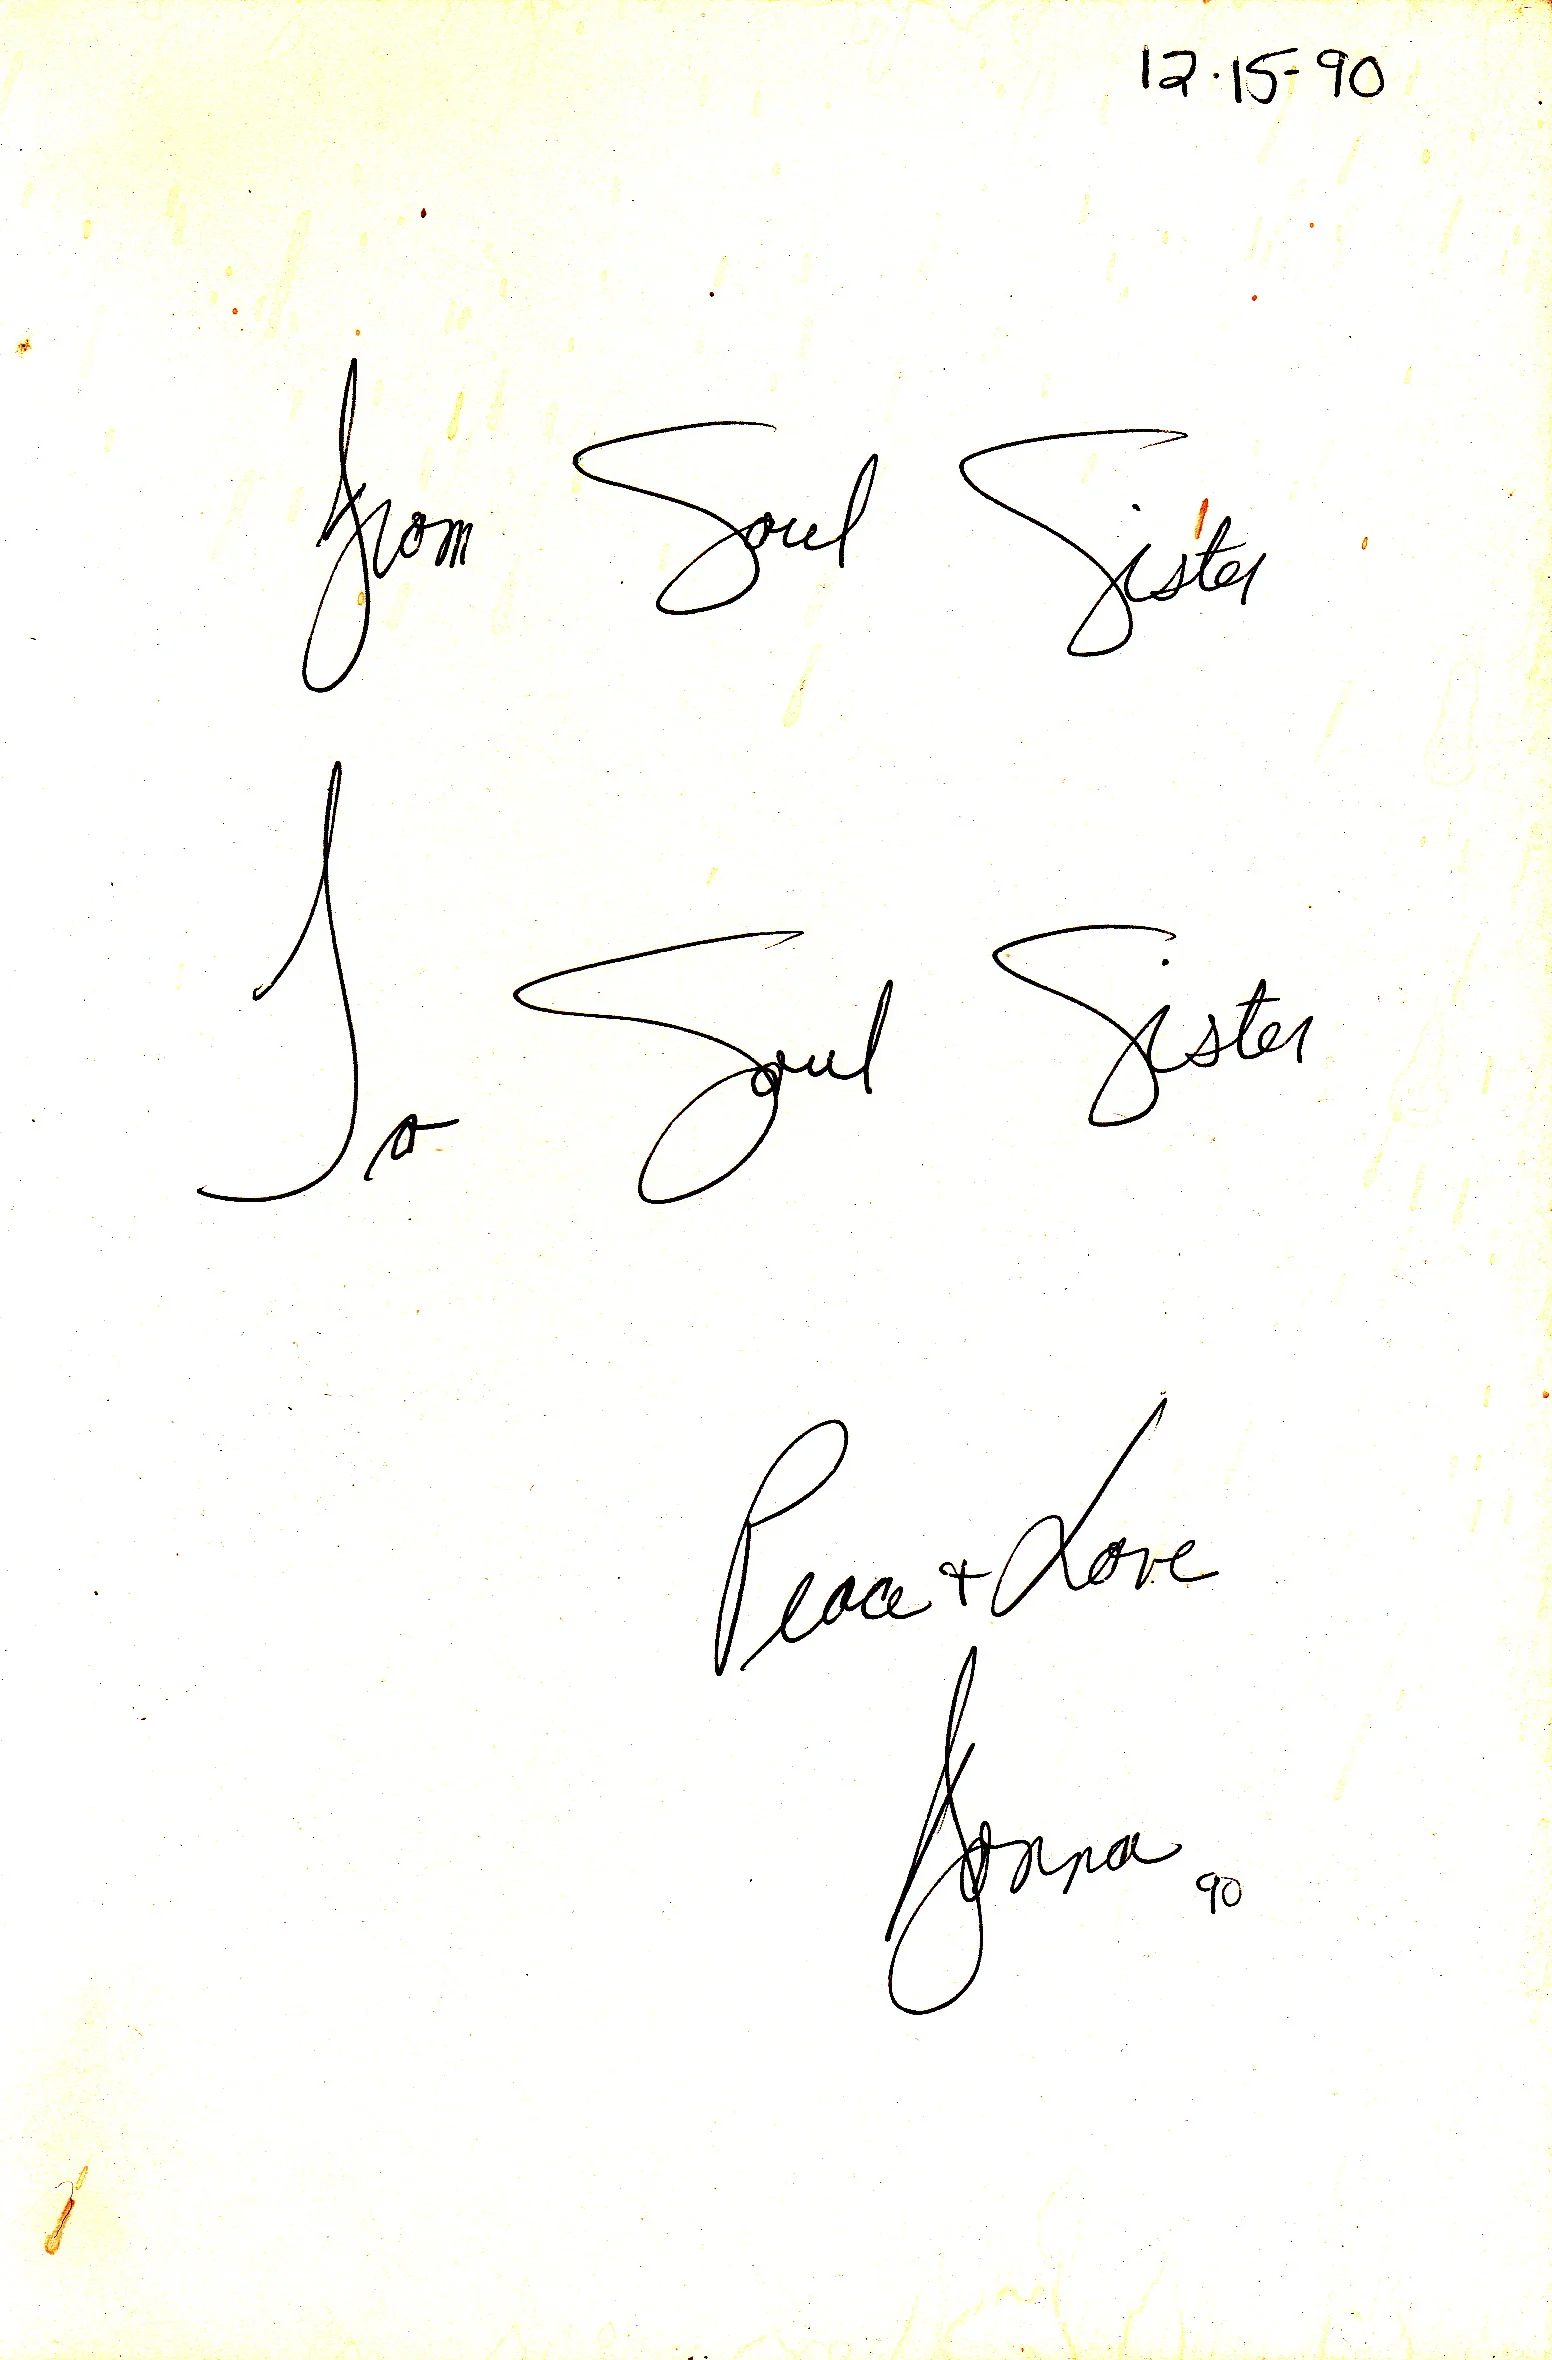 12-15-90
from Soul Sister
To Soul Sister
Peace + Love
Donna 90